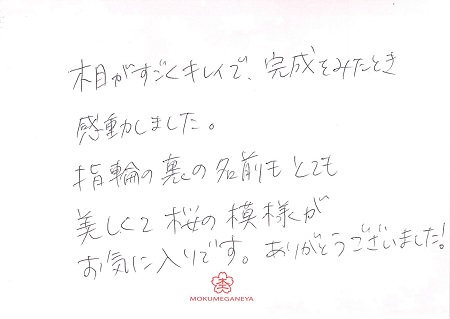 木目がすごくキレイで、完成をみたとき
感動しました。
指輪の裏の名前もとても
美しくて桜の模様が
お気に入りです。ありがとうございました!
杢
MOKUMEGANEYA